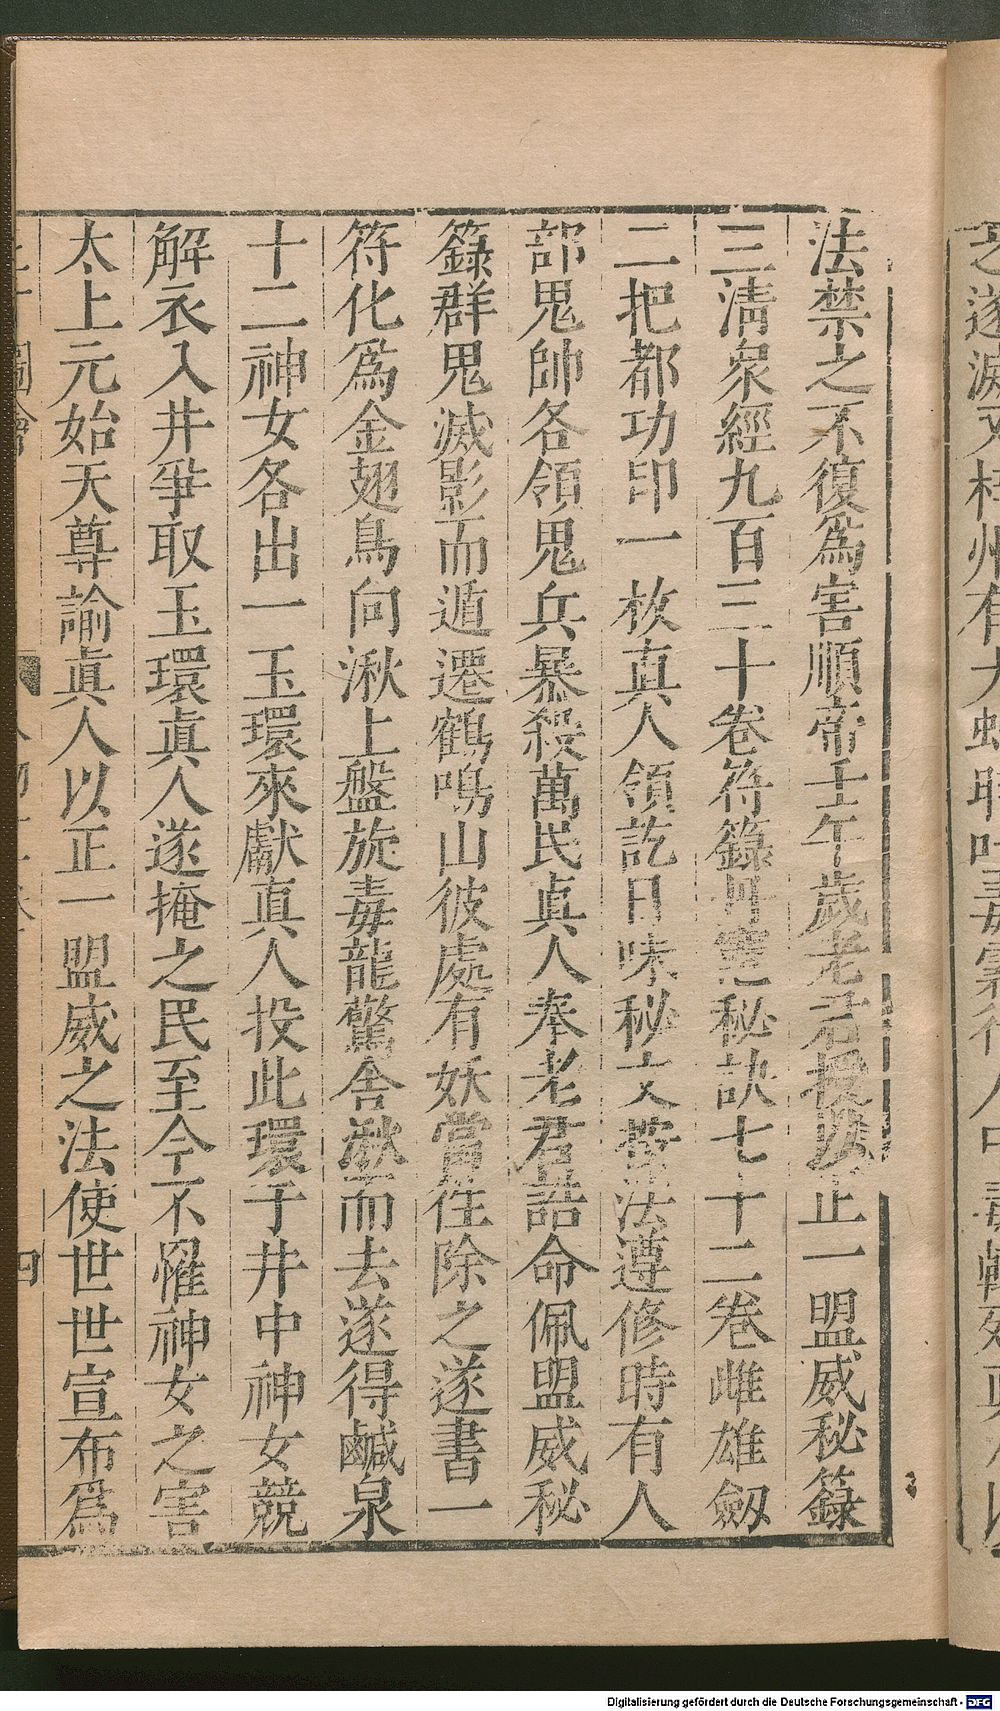 法禁之不復爲害順帝壬午歲老君授正一盟威秘籙
三淸衆經九百三十卷符籙丹竈秘訣七十二卷雌雄劔
二把都功印一枚真人領訖日味秘文按法遵修時有人
部鬼帥各領鬼兵暴殺萬民眞人奉老君誥命佩盟威秘
籙群鬼滅影而遁遷鶴鳴山彼處有妖當往除之遂書一
符化爲金翅鳥向湫上盤旋毒龍驚舍湫而去遂得鹹泉
十二神女各出一玉環來獻真人投此環于井中神女競
解衣入井爭取玉環眞人遂掩之民至今不罹神女之害
太上元始天尊諭眞人以正一盟威之法使世世宣布爲
Digitalisierung gefördert durch die Deutsche Forschungsgemeinschaft - DFG